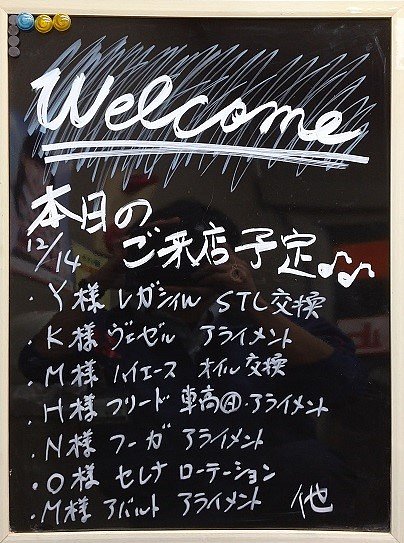 Welcome
本日の
12/14 ご来店予定♪♪
・Y様 レガシィW STL交換
・K様 ヴェゼル アライメント
・M様 ハイエース オイル交換
・H様 フリード 車高㋐・アライメント
・N様 フーガ アライメント
・O様 セレナ ローテーション
・M様 アバルト アライメント 他